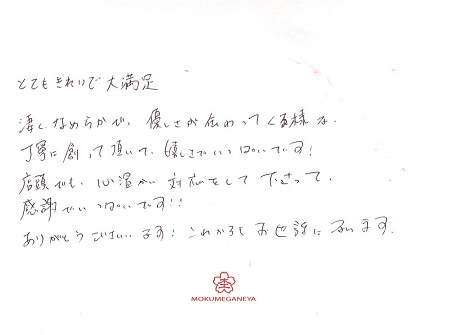 とてもきれいで大満足
凄くなめらかで、優しさが伝わってくる様な。
丁寧に創って頂いて、嬉しさでいっぱいです!
店頭でも、心温かい対応をして下さって、
感謝でいっぱいです!!
ありがとうございます!これからもお世話になります。
杢
MOKUMEGANEYA